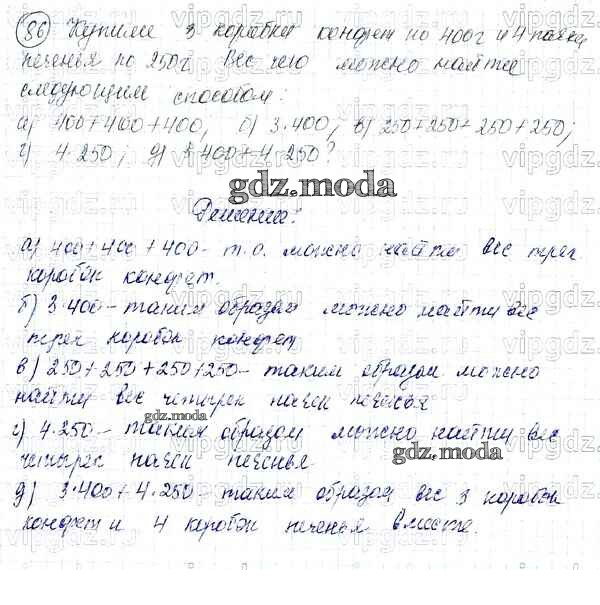 86 Купили 3 коробки конфет по 400г и 4 пачки
печенья по 250г. Вес чего можно найти
следующим способом:
а) 400+400+400, б) 3·400; в) 250+250+250+250;
г) 4·250; д) 3·400+4·250?
gdz.moda
Решение:
а) 400+400+400- т.о. можно найти вес трех
коробок конфет.
б) 3·400-таким образом можно найти вес
трех коробок конфет
в) 250+250+250+250-таким образом можно
найти вес четырех пачек печенья
gdz.moda
г) 4·250-таким образом можно найти вес
четырех пачек печенья
gdz.moda
д) 3·400+4·250-таким образом вес 3 коробок
конфет и 4 коробок печенья вместе.